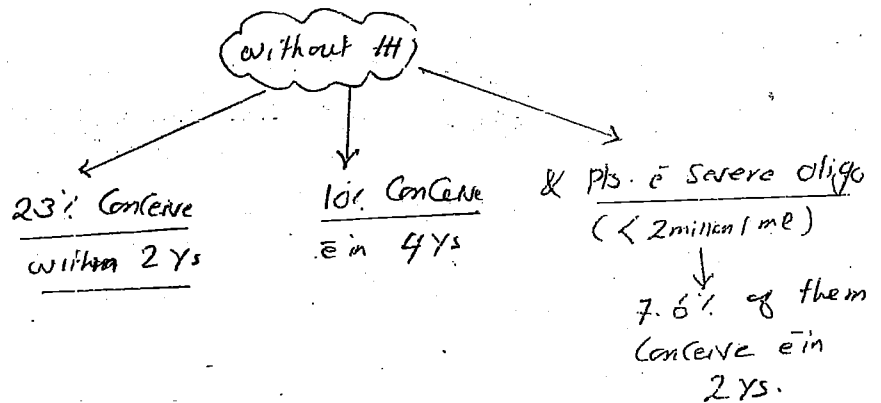 without ttt
23% Conceive
within 2 Ys
10% Conceive
ē in 4 Ys
& Pts. ē Severe oligo
(< 2 million / ml)
7.6% of them
Conceive ē in
2 Ys.